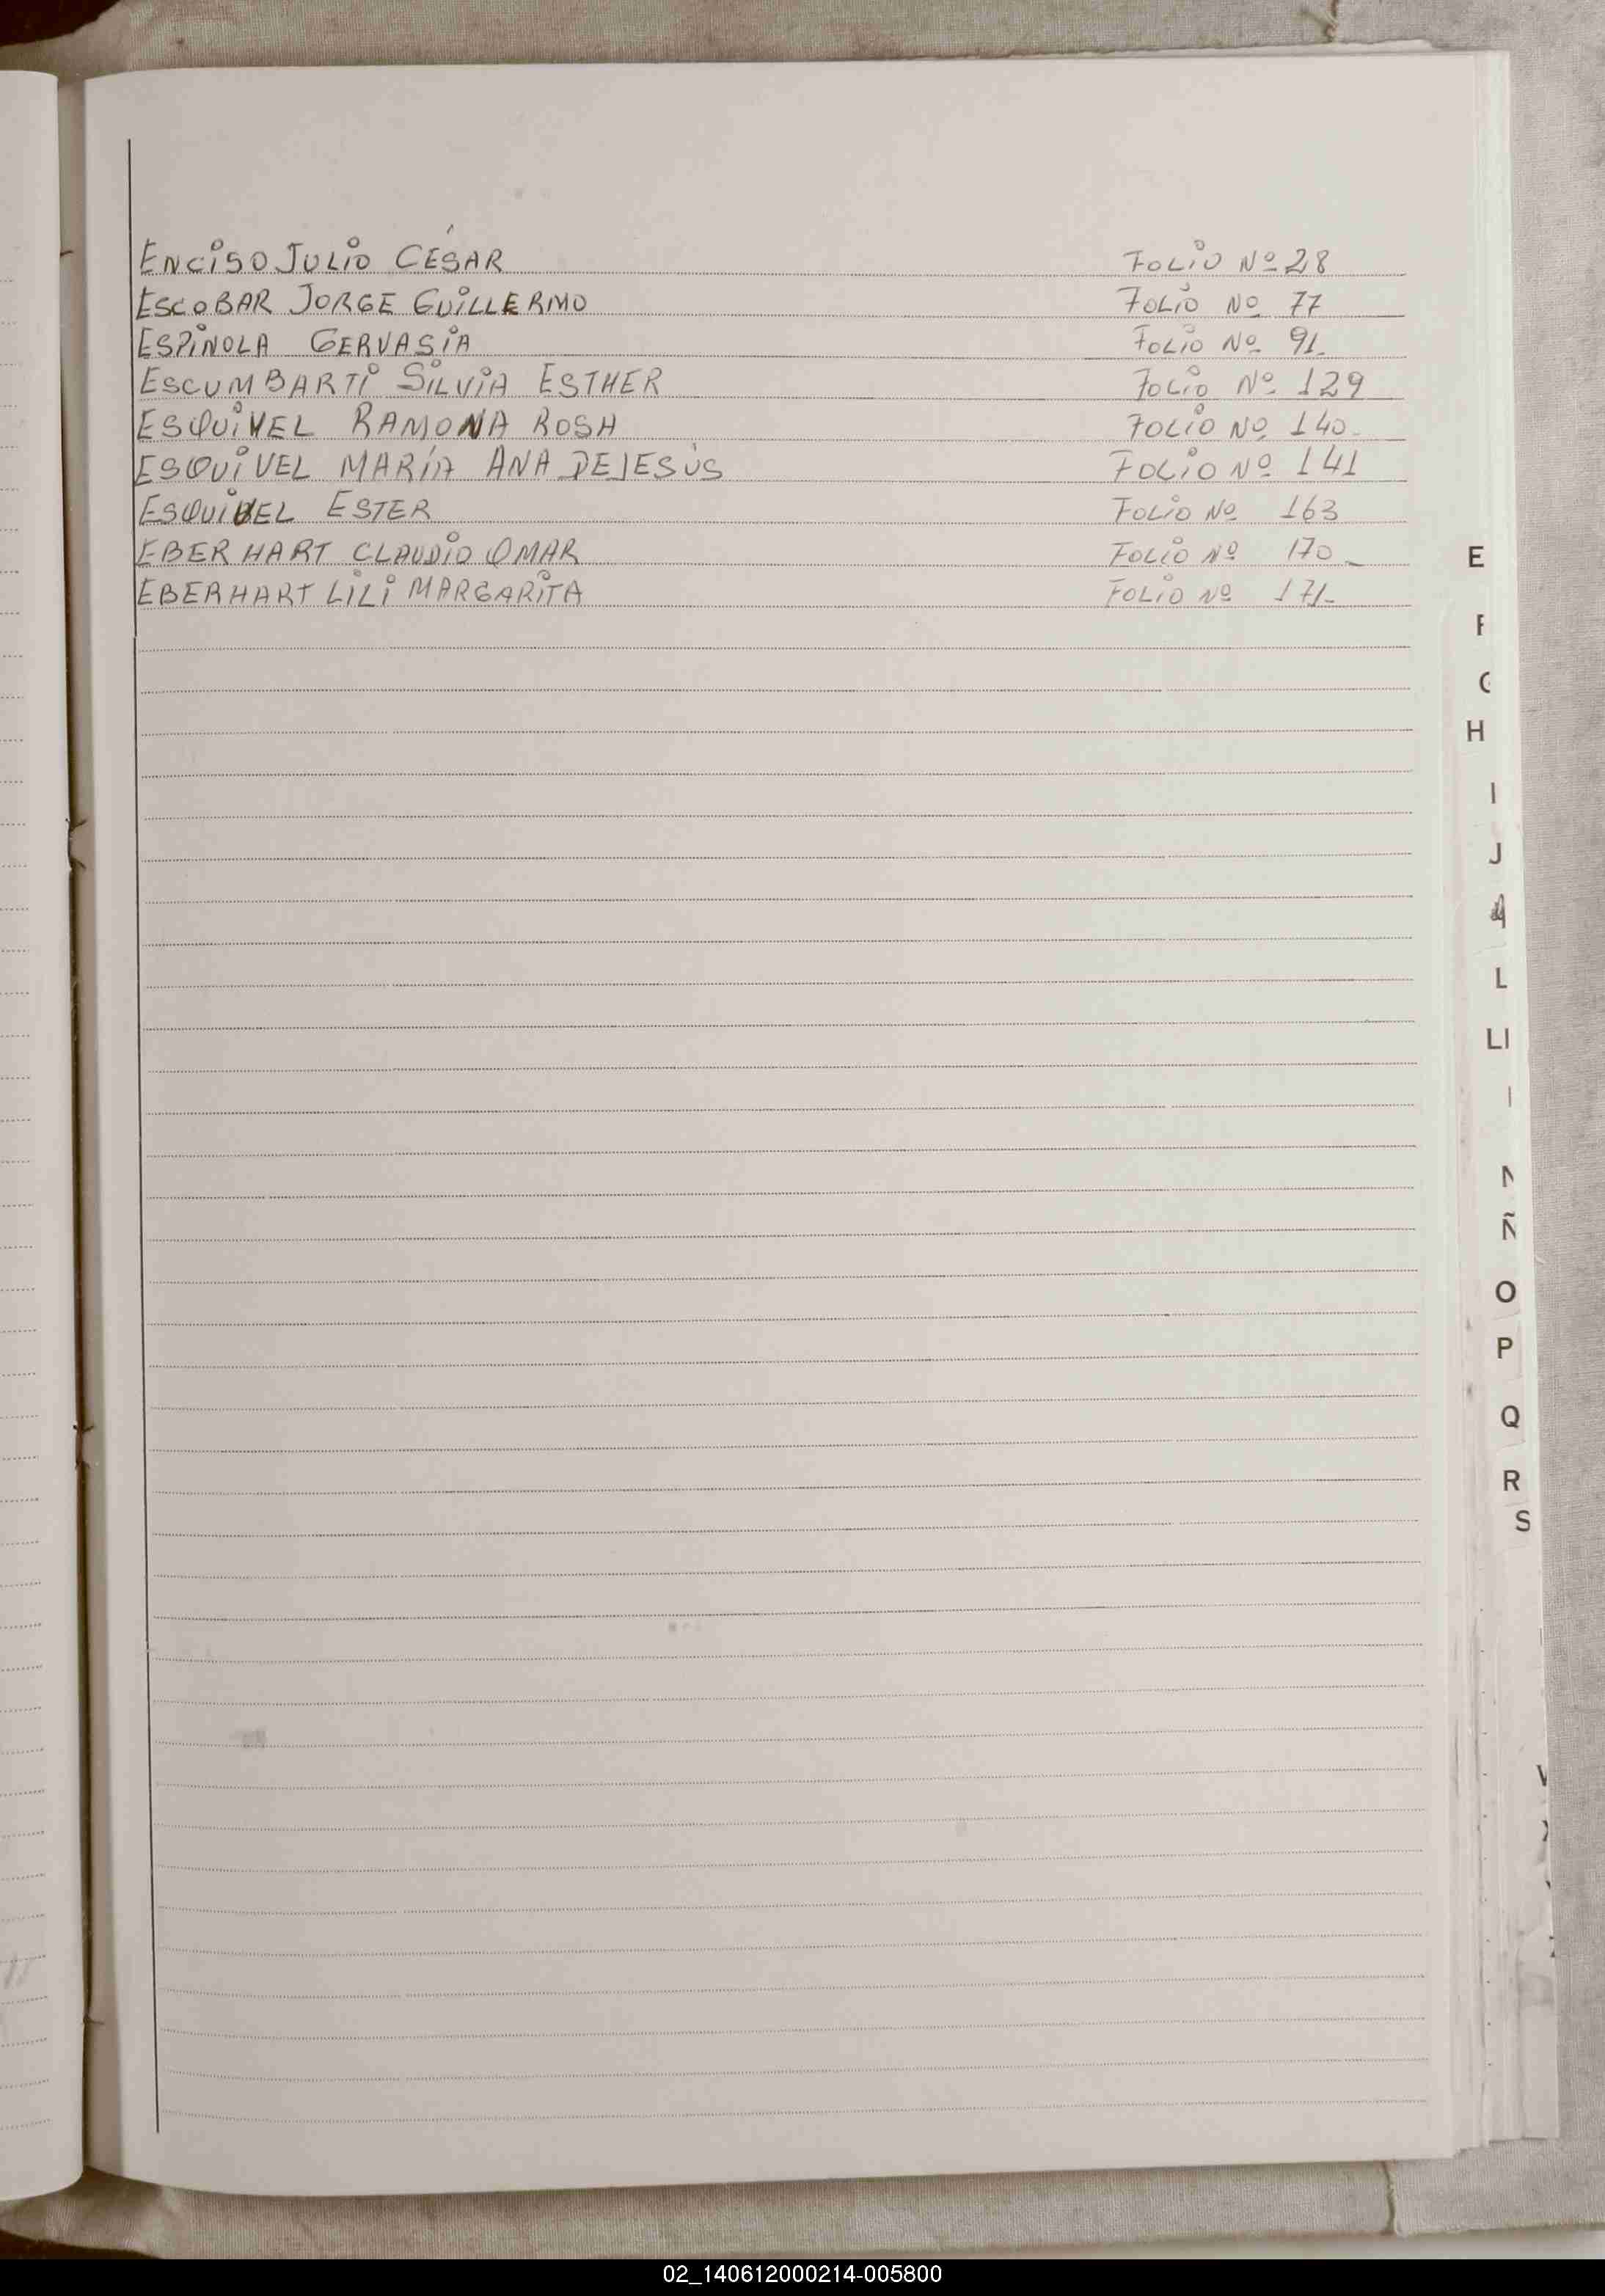 ENCISO JULIO CÉSAR FOLIO Nº 28
ESCOBAR JORGE GUILLERMO FOLIO Nº 77
ESPINOLA GERVASIA FOLIO Nº 91_
ESCUMBARTI SILVIA ESTHER FOLIO Nº 129
ESQUIVEL RAMONA ROSA FOLIO Nº 140_
ESQUIVEL MARÍA ANA DE JESÚS FOLIO Nº 141
ESQUIVEL ESTER FOLIO Nº 163
EBERHART CLAUDIO OMAR FOLIO Nº 170_
EBERHART LILI MARGARITA FOLIO Nº 171_
E
F
G
H
I
J
L
Ll
N
Ñ
O
P
Q
R
S
02_140612000214-005800